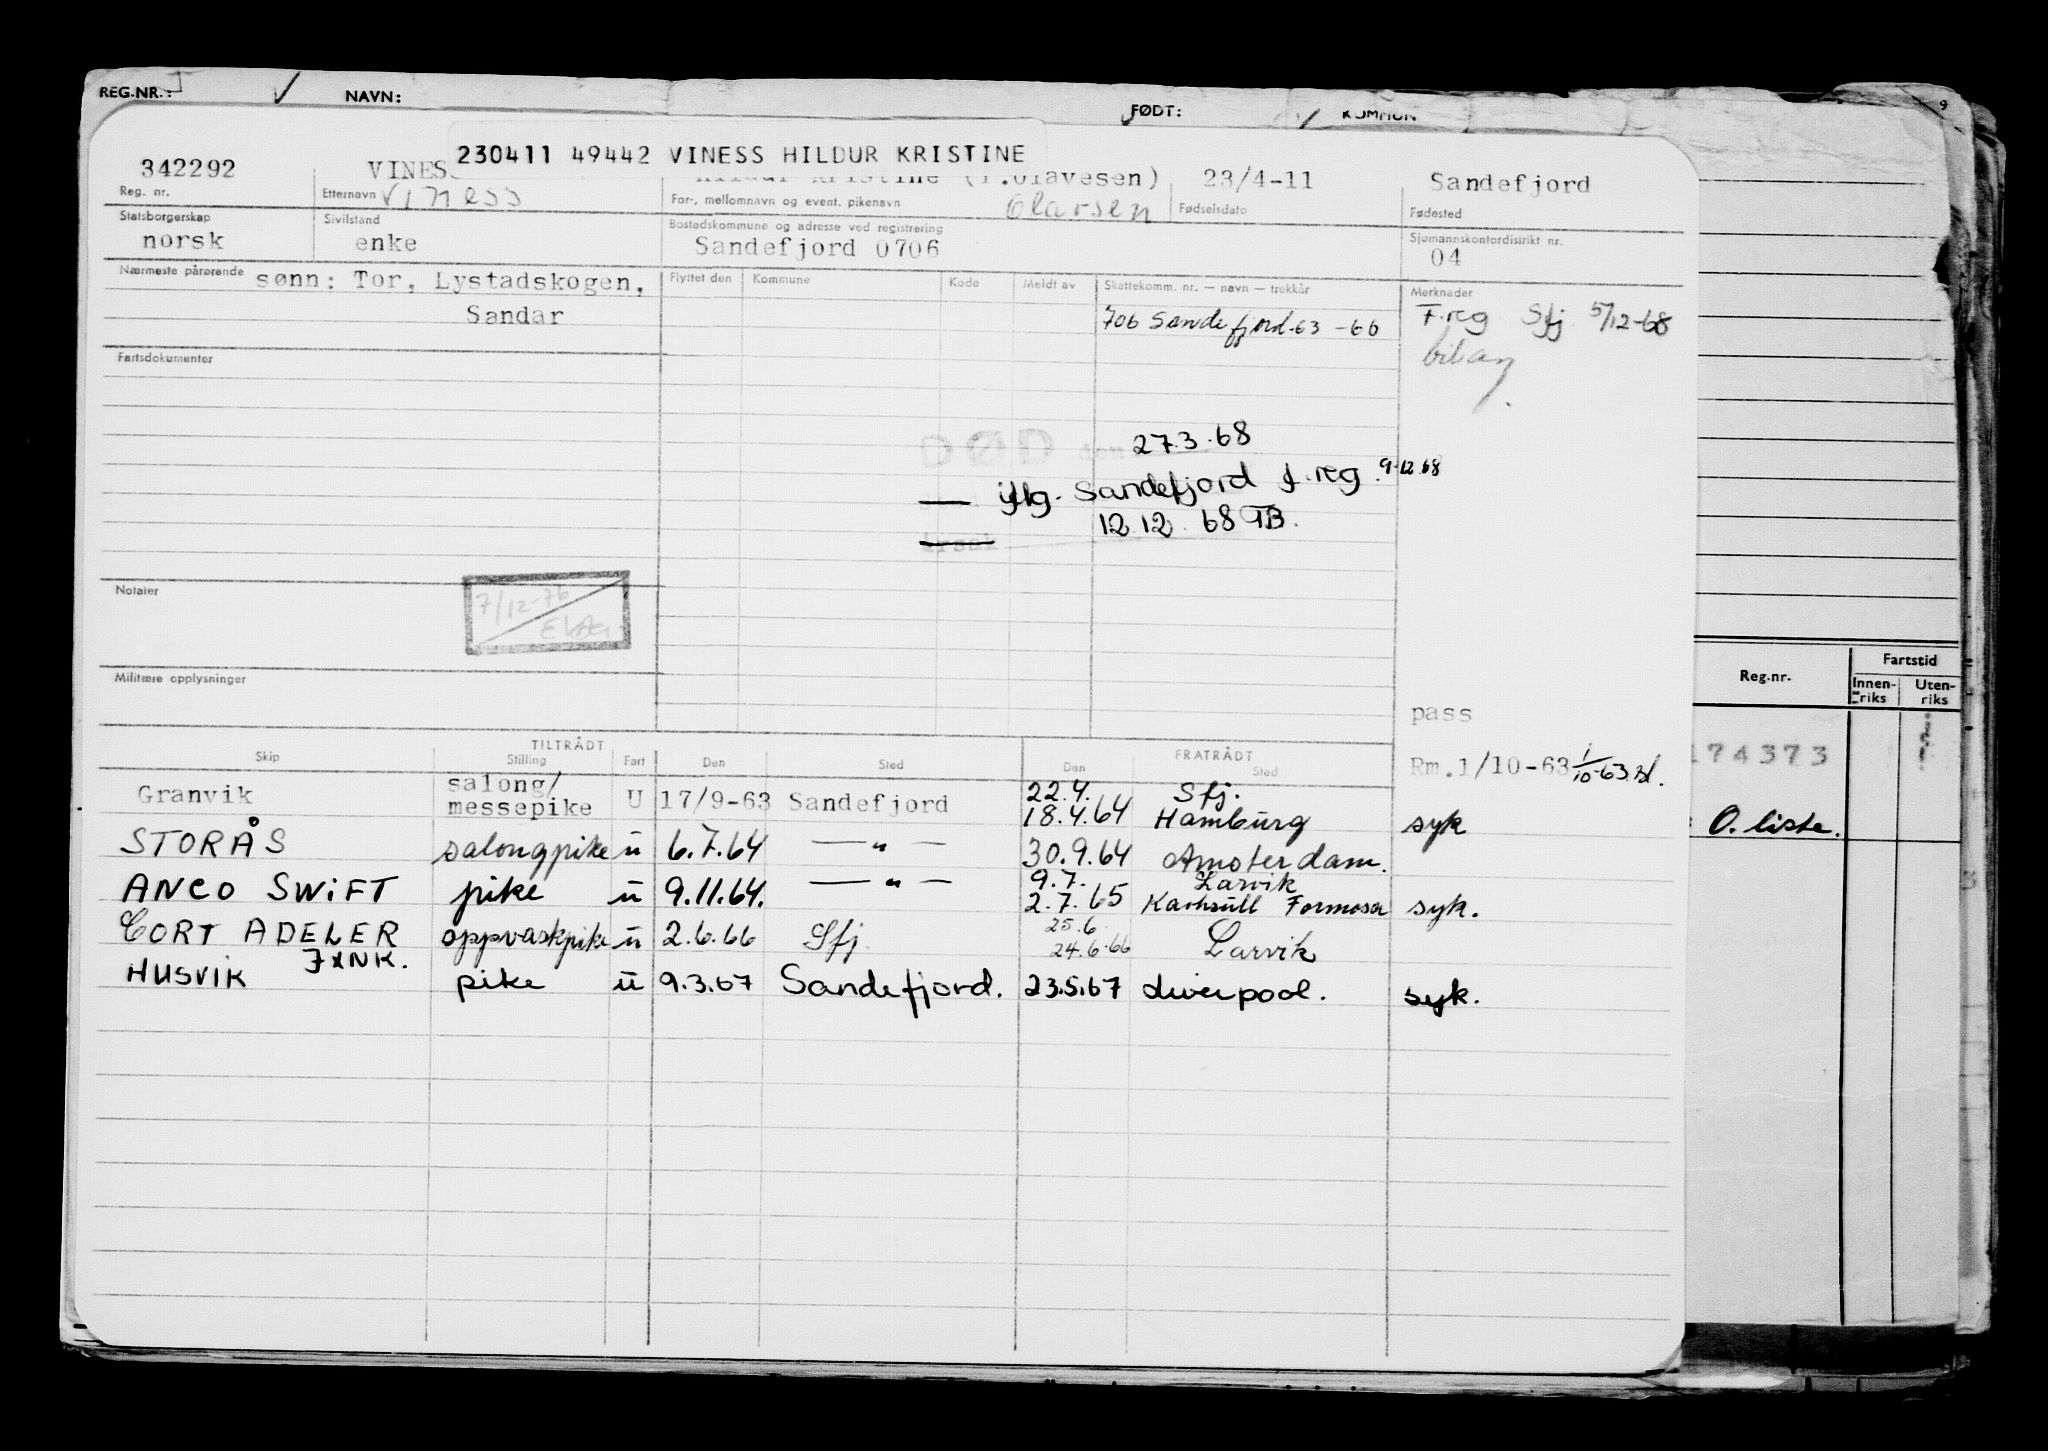 REG.NR.: I NAVN: FØDT: KOMMUN 9
230411 49442 VINESS HILDUR KRISTINE
342292 VINES Kristine (f.Olavesen) 23/4-11 Sandefjord
Reg. nr. Etternavn Viness For-, mellomnavn og event. pikenavn Olavsen Fødselsdato Fødested
Statsborgerskap Sivilstand Bostedskommune og adresse ved registrering Sjømannskontordistrikt nr.
norsk enke Sandefjord 0706 04
Nærmeste pårørende sønn: Tor, Lystadskogen, Flyttet den Kommune Kode Meldt av Skattekomm. nr. — navn — trekkår Merknader
Sandar 706 Sandefjord-63 -66 F.reg Sfj. 5/12-68
Fartsdokumenter
DØD den 27.3.68
— iflg. Sandefjord f.reg. 9.12.68
12.12.68 TB.
årsak
Notater 7/12-76
Militære opplysninger
pass
Reg.nr. Fartstid
Innenriks Utenriks
TILTRÅDT FRATRÅDT
Skip Stilling Fart Den Sted Den Sted Rm.1/10-63 1/10-63
174373
Granvik salong/ messepike U 17/9-63 Sandefjord 22.4. Sfj.
18.4.64 Hamburg syk O. liste.
STORÅS salongpike u 6.7.64 — " — 30.9.64 Amsterdam.
9.7. Larvik
ANCO SWIFT pike u 9.11.64. — " — 2.7.65 Kaohsull Formosa syk.
25.6.
CORT ADELER oppvaskpike u 2.6.66 Sfj. 24.6.66 Larvik
HUSVIK JXNK. pike u 9.3.67 Sandefjord. 23.5.67 Liverpool. syk.